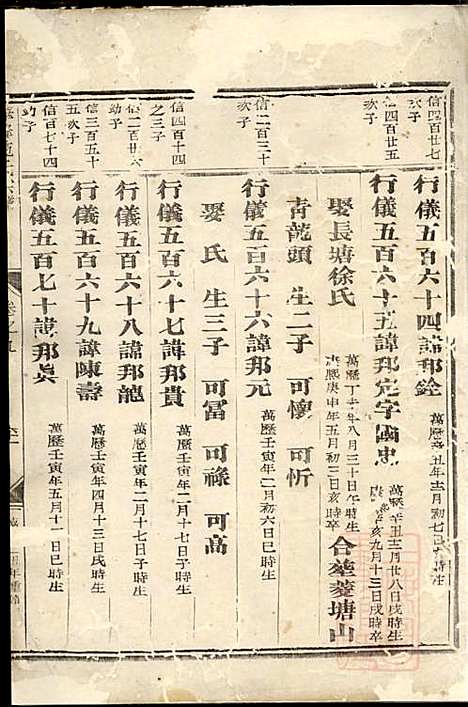 信四百廿七
次子
行儀五百六十四諱邦銓
丑年士月初七巳時生
信四百廿五
次子
行儀五百六十五諱邦定字國忠
萬曆辛丑士月廿八日戌時生
亥九月十三日戌時卒
娶長塘徐氏
萬曆丁 年八月三十日午時生
庚申年五月初三日亥時卒
合葬菱塘山
青龍頭 生二子 可懷 可忻
信二百三十
次子
行儀五百六十六諱邦元
萬曆壬寅年二月初六日巳時生
娶氏 生三子 可富 可祿 可高
信四百十四
之三子
行儀五百六十七諱邦貴
萬曆壬寅年二月十七日子時生
信二百六十
幼子
行儀五百六十八諱邦龍
萬曆壬寅年二月十七日子時生
信三百五十
五次子
行儀五百六十九諱陳壽
萬曆壬寅年四月十三日戌時生
信百七十四
幼子
行儀五百七十諱邦眞
萬曆壬寅年五月十一日巳時生